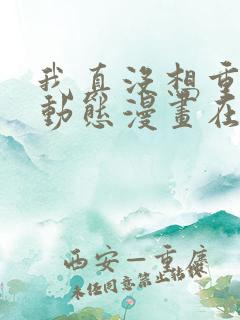 我真没想重
動態漫畫在
西安—重庆
未任同意禁止转载